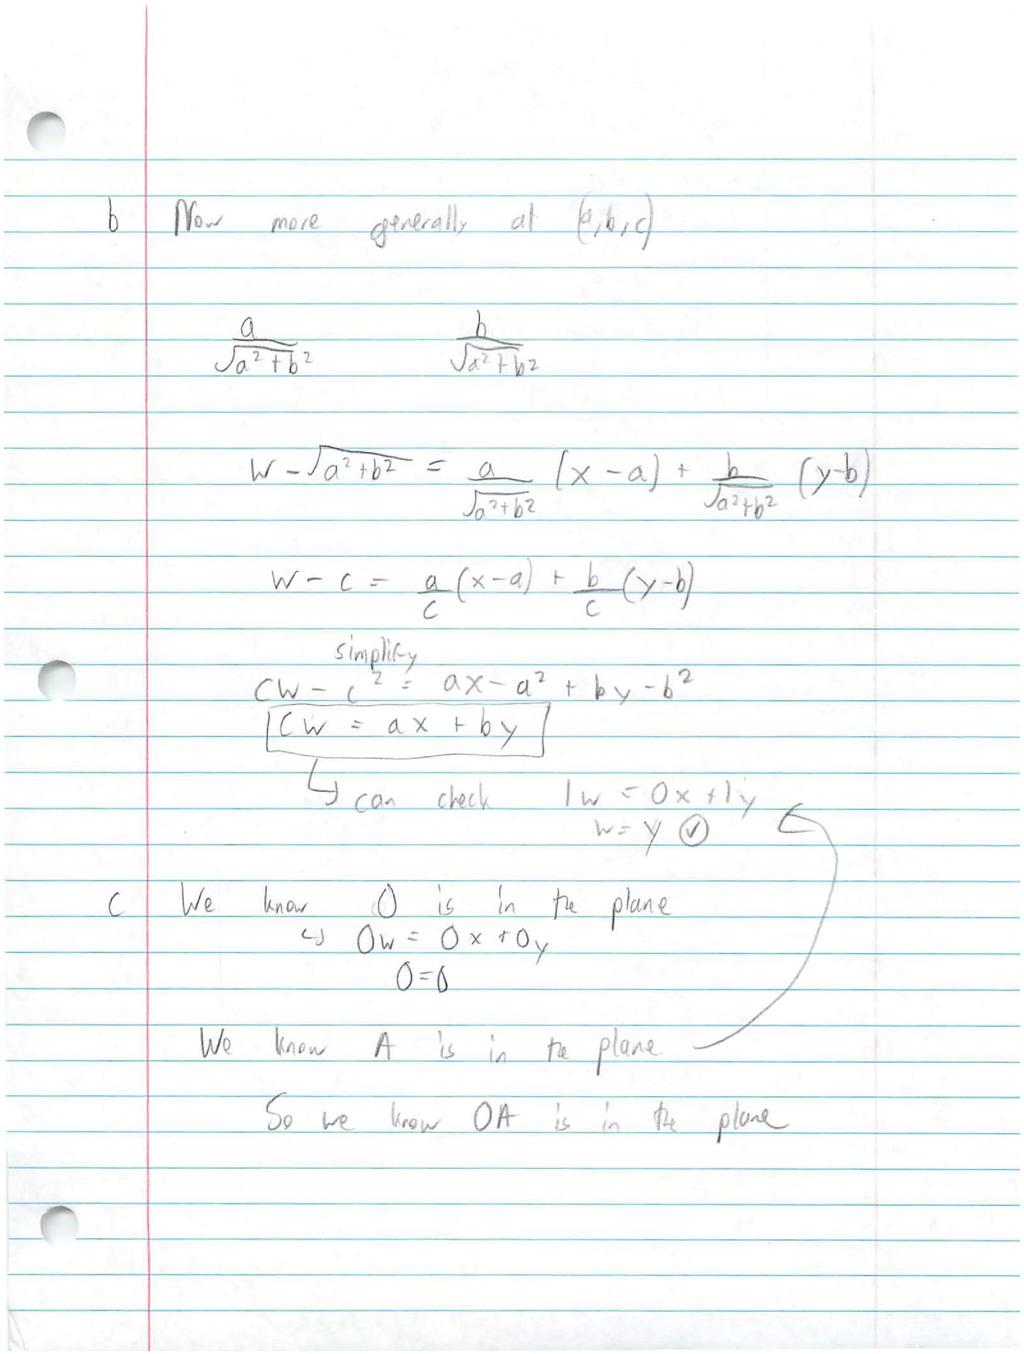 b Now more generally at (a,b,c)
a/√(a²+b²) b/√(a²+b²)
w - √(a²+b²) = a/√(a²+b²) (x-a) + b/√(a²+b²) (y-b)
w - c = a/c (x-a) + b/c (y-b)
simplify
cw - c² = ax - a² + by - b²
cw = ax + by
↳ can check 1w = 0x + 1y
w = y ✓
c We know O is in the plane
↳ 0w = 0x + 0y
0 = 0
We know A is in the plane
So we know OA is in the plane